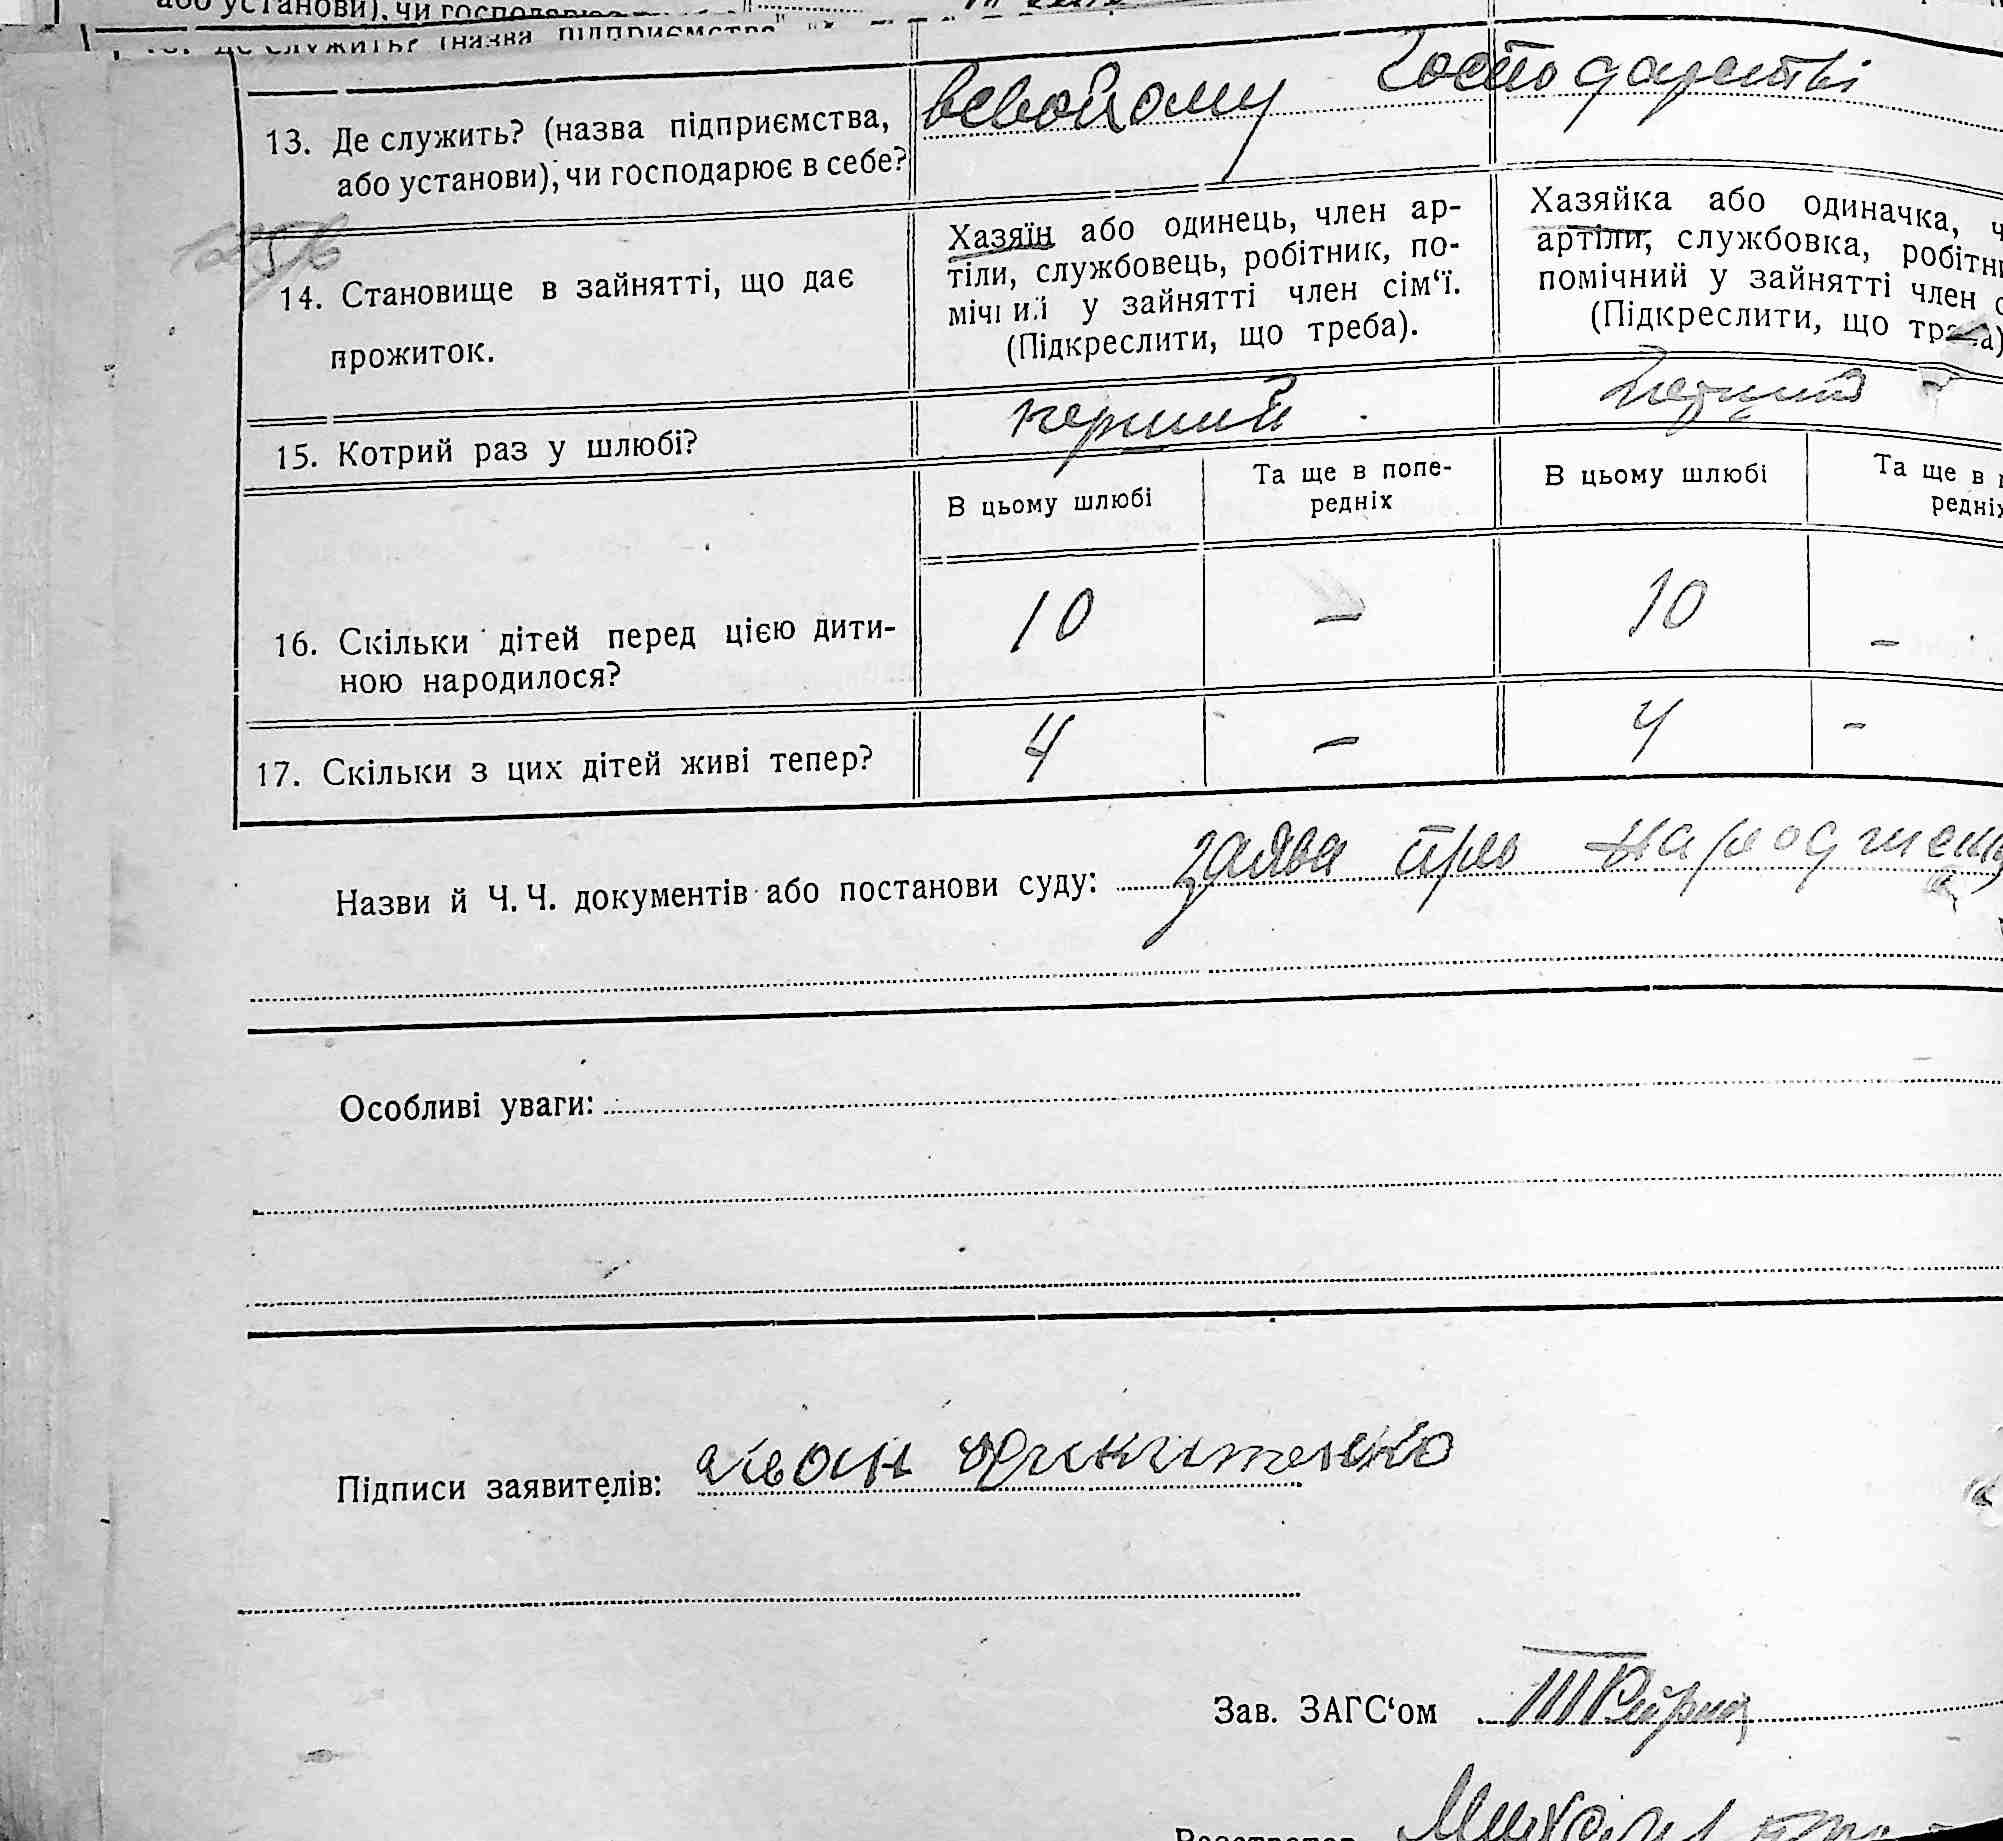 або установи), чи господарює
13. Де служить? (назва підприємства,
або установи), чи господарює в себе?
всвойому господарстві
14. Становище в зайнятті, що дає
прожиток.
Хазяїн або одинець, член ар-
тіли, службовець, робітник, по-
мічний у зайнятті член сім‘ї.
(Підкреслити, що треба).
Хазяйка або одиначка, ч
артіли, службовка, робітни
помічний у зайнятті член с
(Підкреслити, що треба)
15. Котрий раз у шлюбі?
перший
перший
В цьому шлюбі
Та ще в попе-
редніх
В цьому шлюбі
Та ще в п
редніх
16. Скільки дітей перед цією дити-
ною народилося?
10 – 10 –
17. Скільки з цих дітей живі тепер?
4 – 4 –
Назви й Ч. Ч. документів або постанови суду: заява про народження
Особливі уваги:
Підписи заявителів: Іван Микитенко
Зав. ЗАГС‘ом